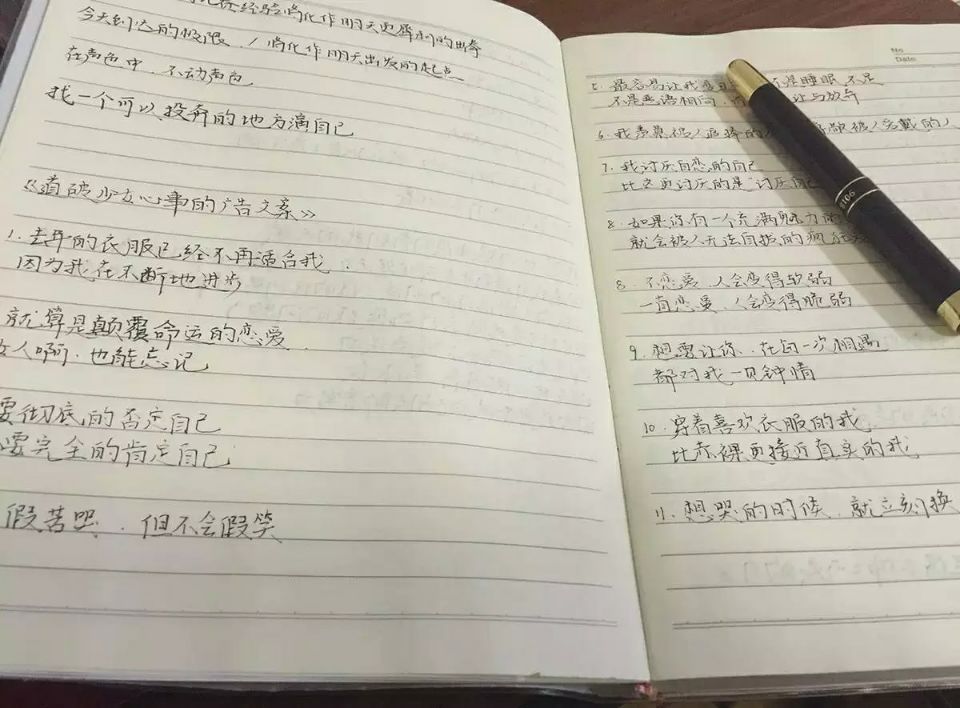 经验消化作明天更犀利的出击
今天到达的极限 / 消化作明天出发的起点
在声色中，不动声色
找一个可以投奔的地方滴自己
《道破少女心事的广告文案》
1. 去年的衣服已经不再适合我，
因为我在不断地进步
就算是颠覆命运的恋爱
女人啊，也能忘记
要彻底的否定自己
要完全的肯定自己
假苦哭，但不会假笑
No
Date
5. 最容易让我 不是睡眠不足
不是恶语相向， 让与放弃
6. 我羡慕被人追捧的 被人爱戴的人
7. 我讨厌自恋的自己
比这更讨厌的是 讨厌自己
8. 如果你有一个充满魅力的
就会被人无法自拔的疯狂
9018
8. 不恋爱，人会变得软弱
一直恋爱，人会变得脆弱
9. 想要让你，在每一次相遇
都对我一见钟情
10. 穿着喜欢衣服的我，
比赤裸更接近真实的我
11. 想哭的时候，就立刻换